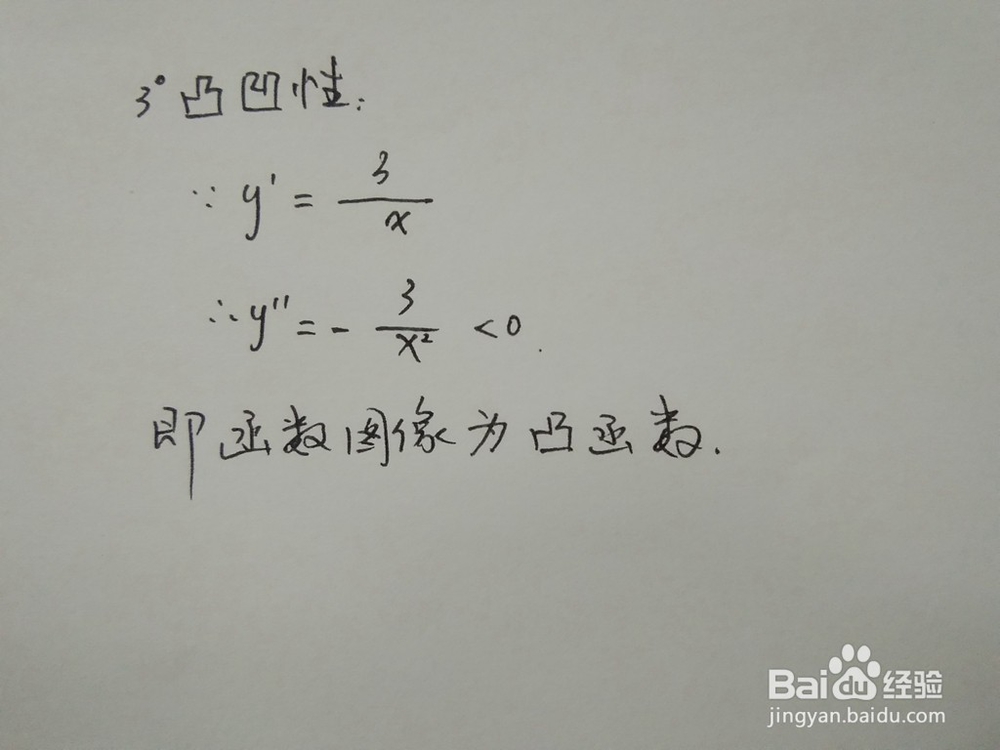 3° 凸凹性:
∵ y' = 3/x
∴ y'' = - 3/x² < 0.
即函数图像为凸函数.
Baidu 经验
jingyan.baidu.com